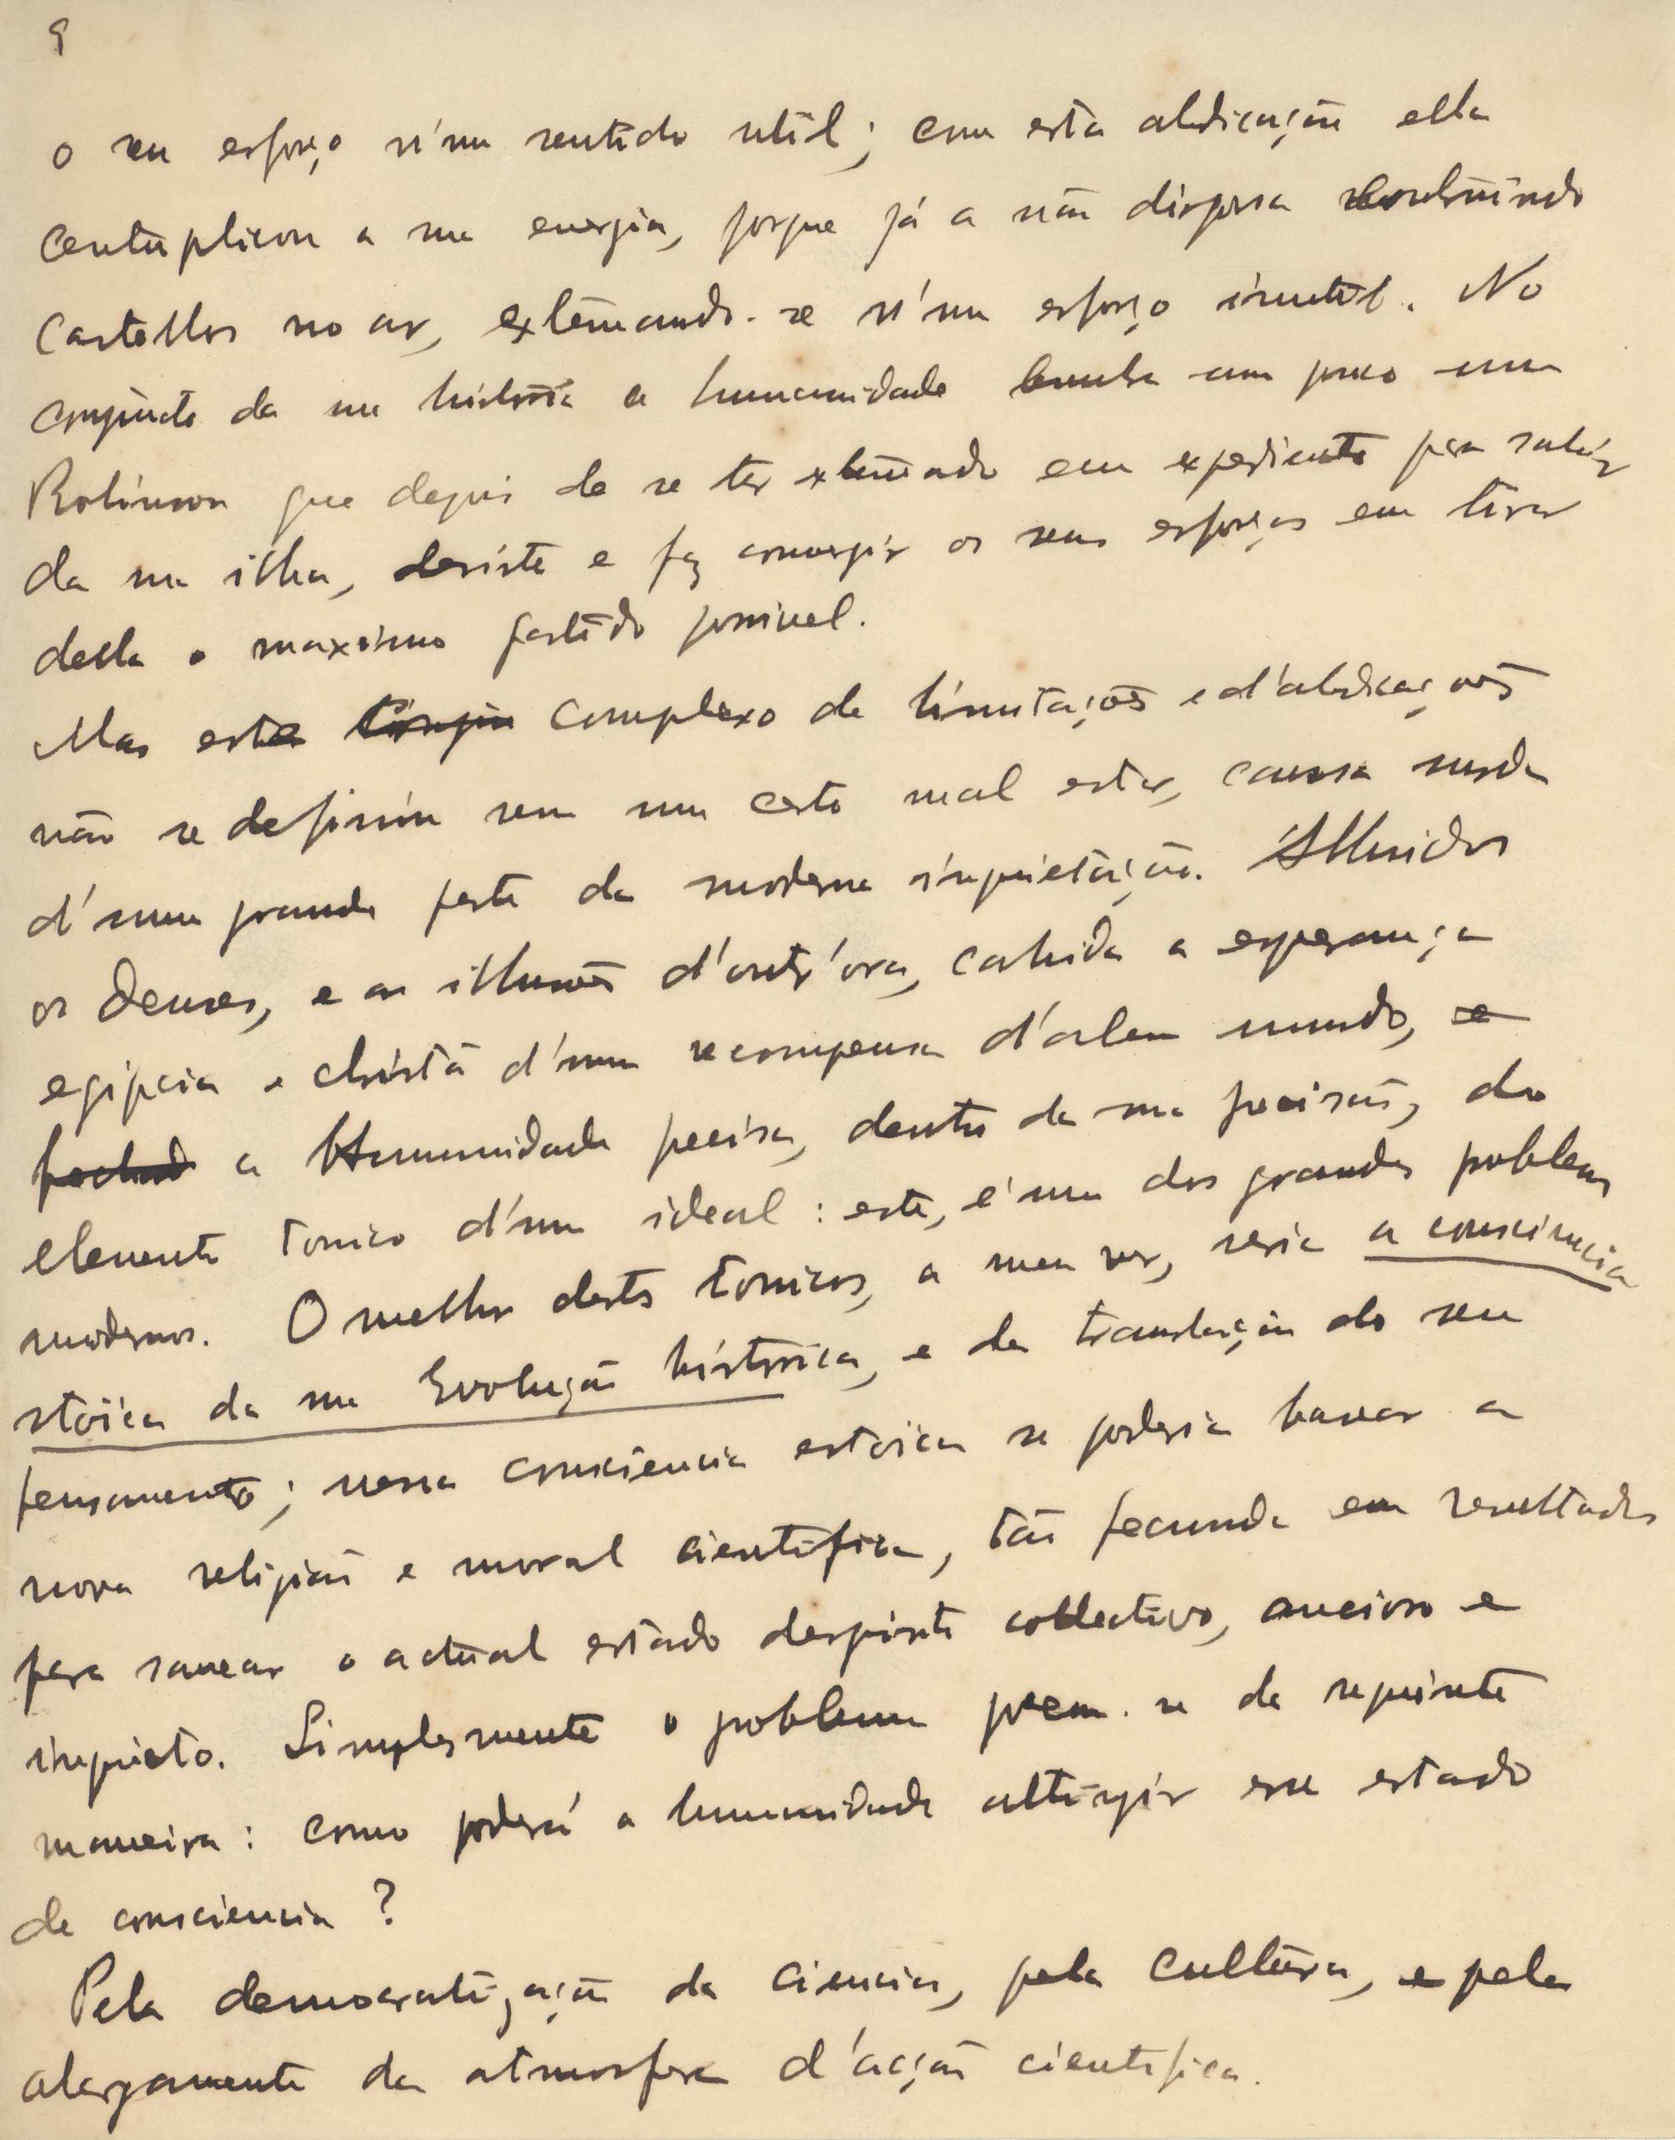 9
o seu esforço n'um sentido util; com esta abdicação ella
centuplicou a sua energia, porque já a não dispersa construindo
castellos no ar, extenuando-se n'um esforço inutil. No
conjuncto da sua historia a humanidade lembra um pouco um
Robinson que depois de se ter extenuado em expedientes para sahir
da sua ilha, desiste e faz convergir os seus esforços em tirar
della o maximo partido possivel.
Mas este complexo de limitações e d'abdicações
não se definiu sem um certo mal estar, causa surda
d'uma grande parte da moderna inquietação. Alluidos
os deuses, e as illusões d'outr'ora, cahida a esperança
egipcia e christã d'uma recompensa d'alem mundo,
a Humanidade precisa, dentro da sua prisão, do
elemento tonico d'um ideal: este, é um dos grandes problemas
modernos. O melhor destes tonicos, a meu ver, seria a consciencia
stoica da sua Evolução historica, e da translação do seu
pensamento; nessa consciencia estoica se poderia basear a
nova religião e moral cientifica, tão fecunda em resultados
para sanear o actual estado despirito collectivo, ancioso e
inquieto. Simplesmente o problema põem-se da seguinte
maneira: como poderá a humanidade attingir esse estado
de consciencia?
Pela democratização da ciencia, pela cultura, e pelo
alargamento da atmosfera d'acção cientifica.